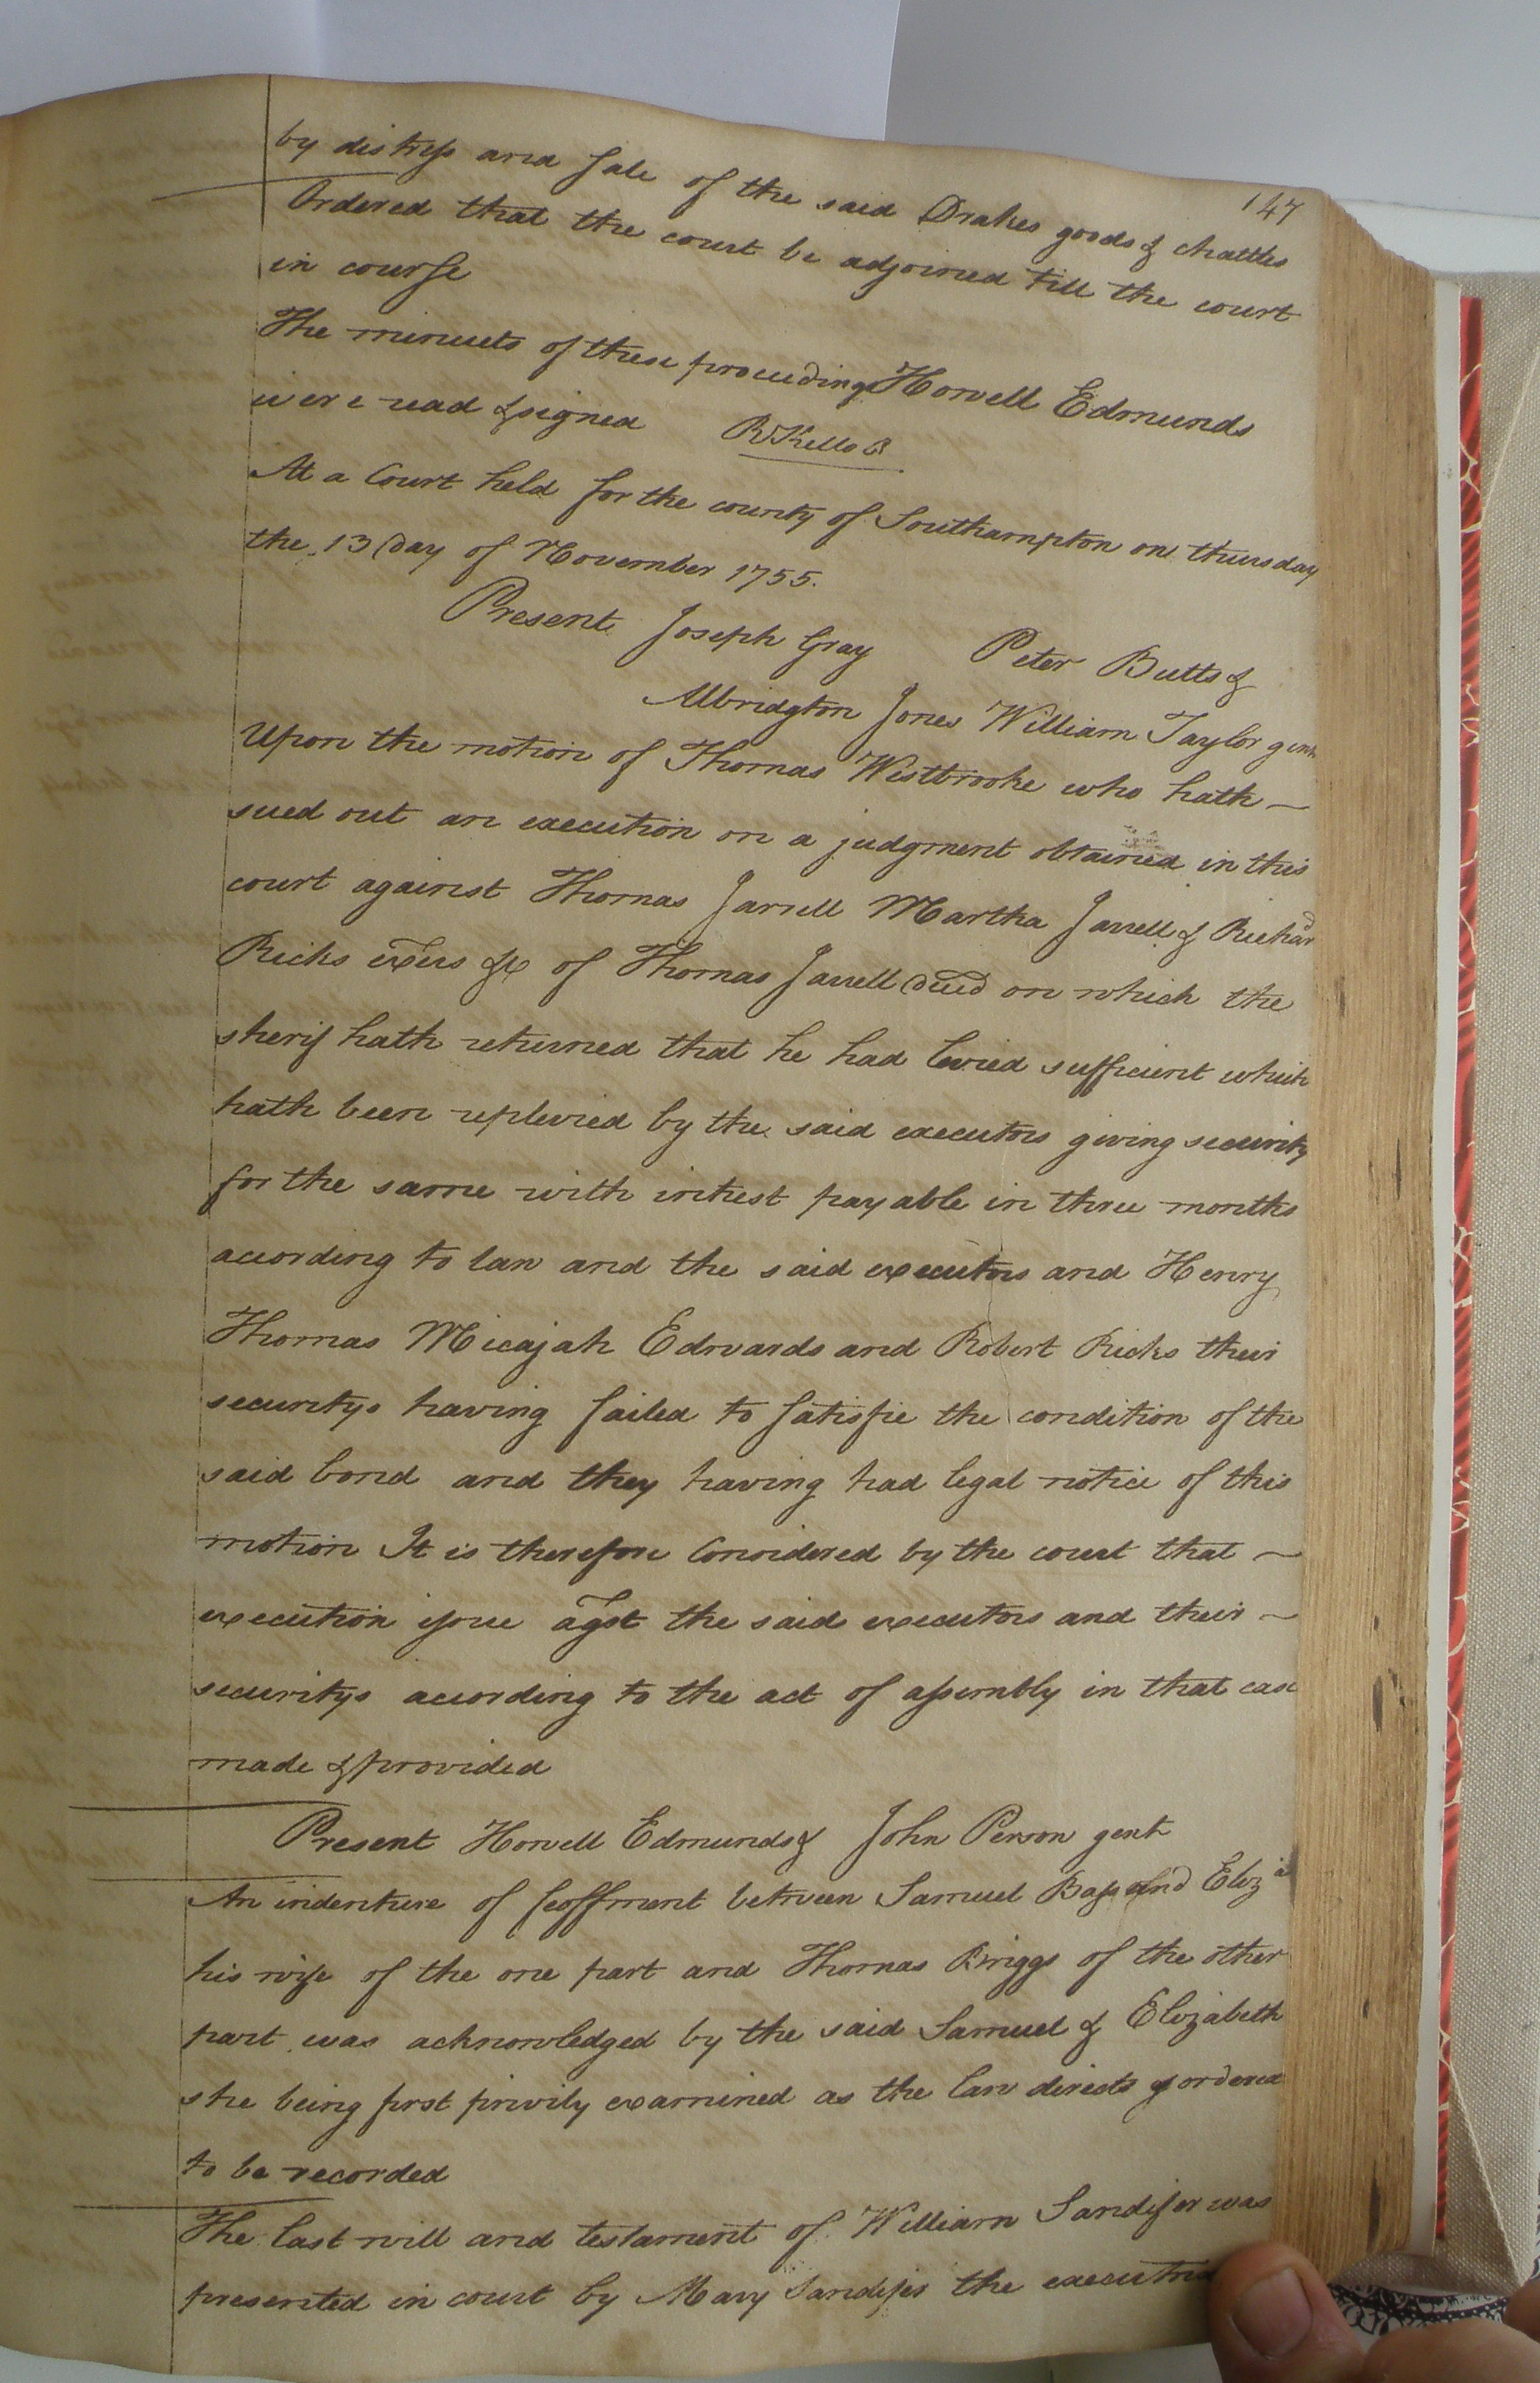 147
by distress and sale of the said Drakes goods & chattles
Ordered that the court be adjoined till the court
in course
The minuets of these proceedings Howell Edmunds
were read & signed RKello
At a Court held for the county of Southampton on thursday
the 13 day of November 1755.
Present Joseph Gray Peter Butts &
Albridgton Jones William Taylor gent
Upon the motion of Thomas Westbrooke who hath —
sued out an execution on a judgment obtained in this
court against Thomas Jarrell Martha Jarrell & Richard
Ricks exers &c of Thomas Jarrell decd on which the
sherif hath returned that he had levied sufficient which
hath been replevied by the said executors giving security
for the same with intrest payable in three months
according to law and the said executors and Henry
Thomas Micajah Edwards and Robert Ricks their
securitys having failed to satisfie the condition of the
said bond and they having had legal notice of this
motion It is therefore Considered by the court that —
execution issue agst the said executors and their —
securitys according to the act of assembly in that case
made & provided
Present Howell Edmunds & John Person gent
An indenture of feoffment between Samuel Bass and Eliza
his wife of the one part and Thomas Briggs of the other
part was acknowledged by the said Samuel & Elizabeth
she being first privily examined as the law directs & ordered
to be recorded
The last will and testament of William Sandifer was
presented in court by Mary Sandifer the